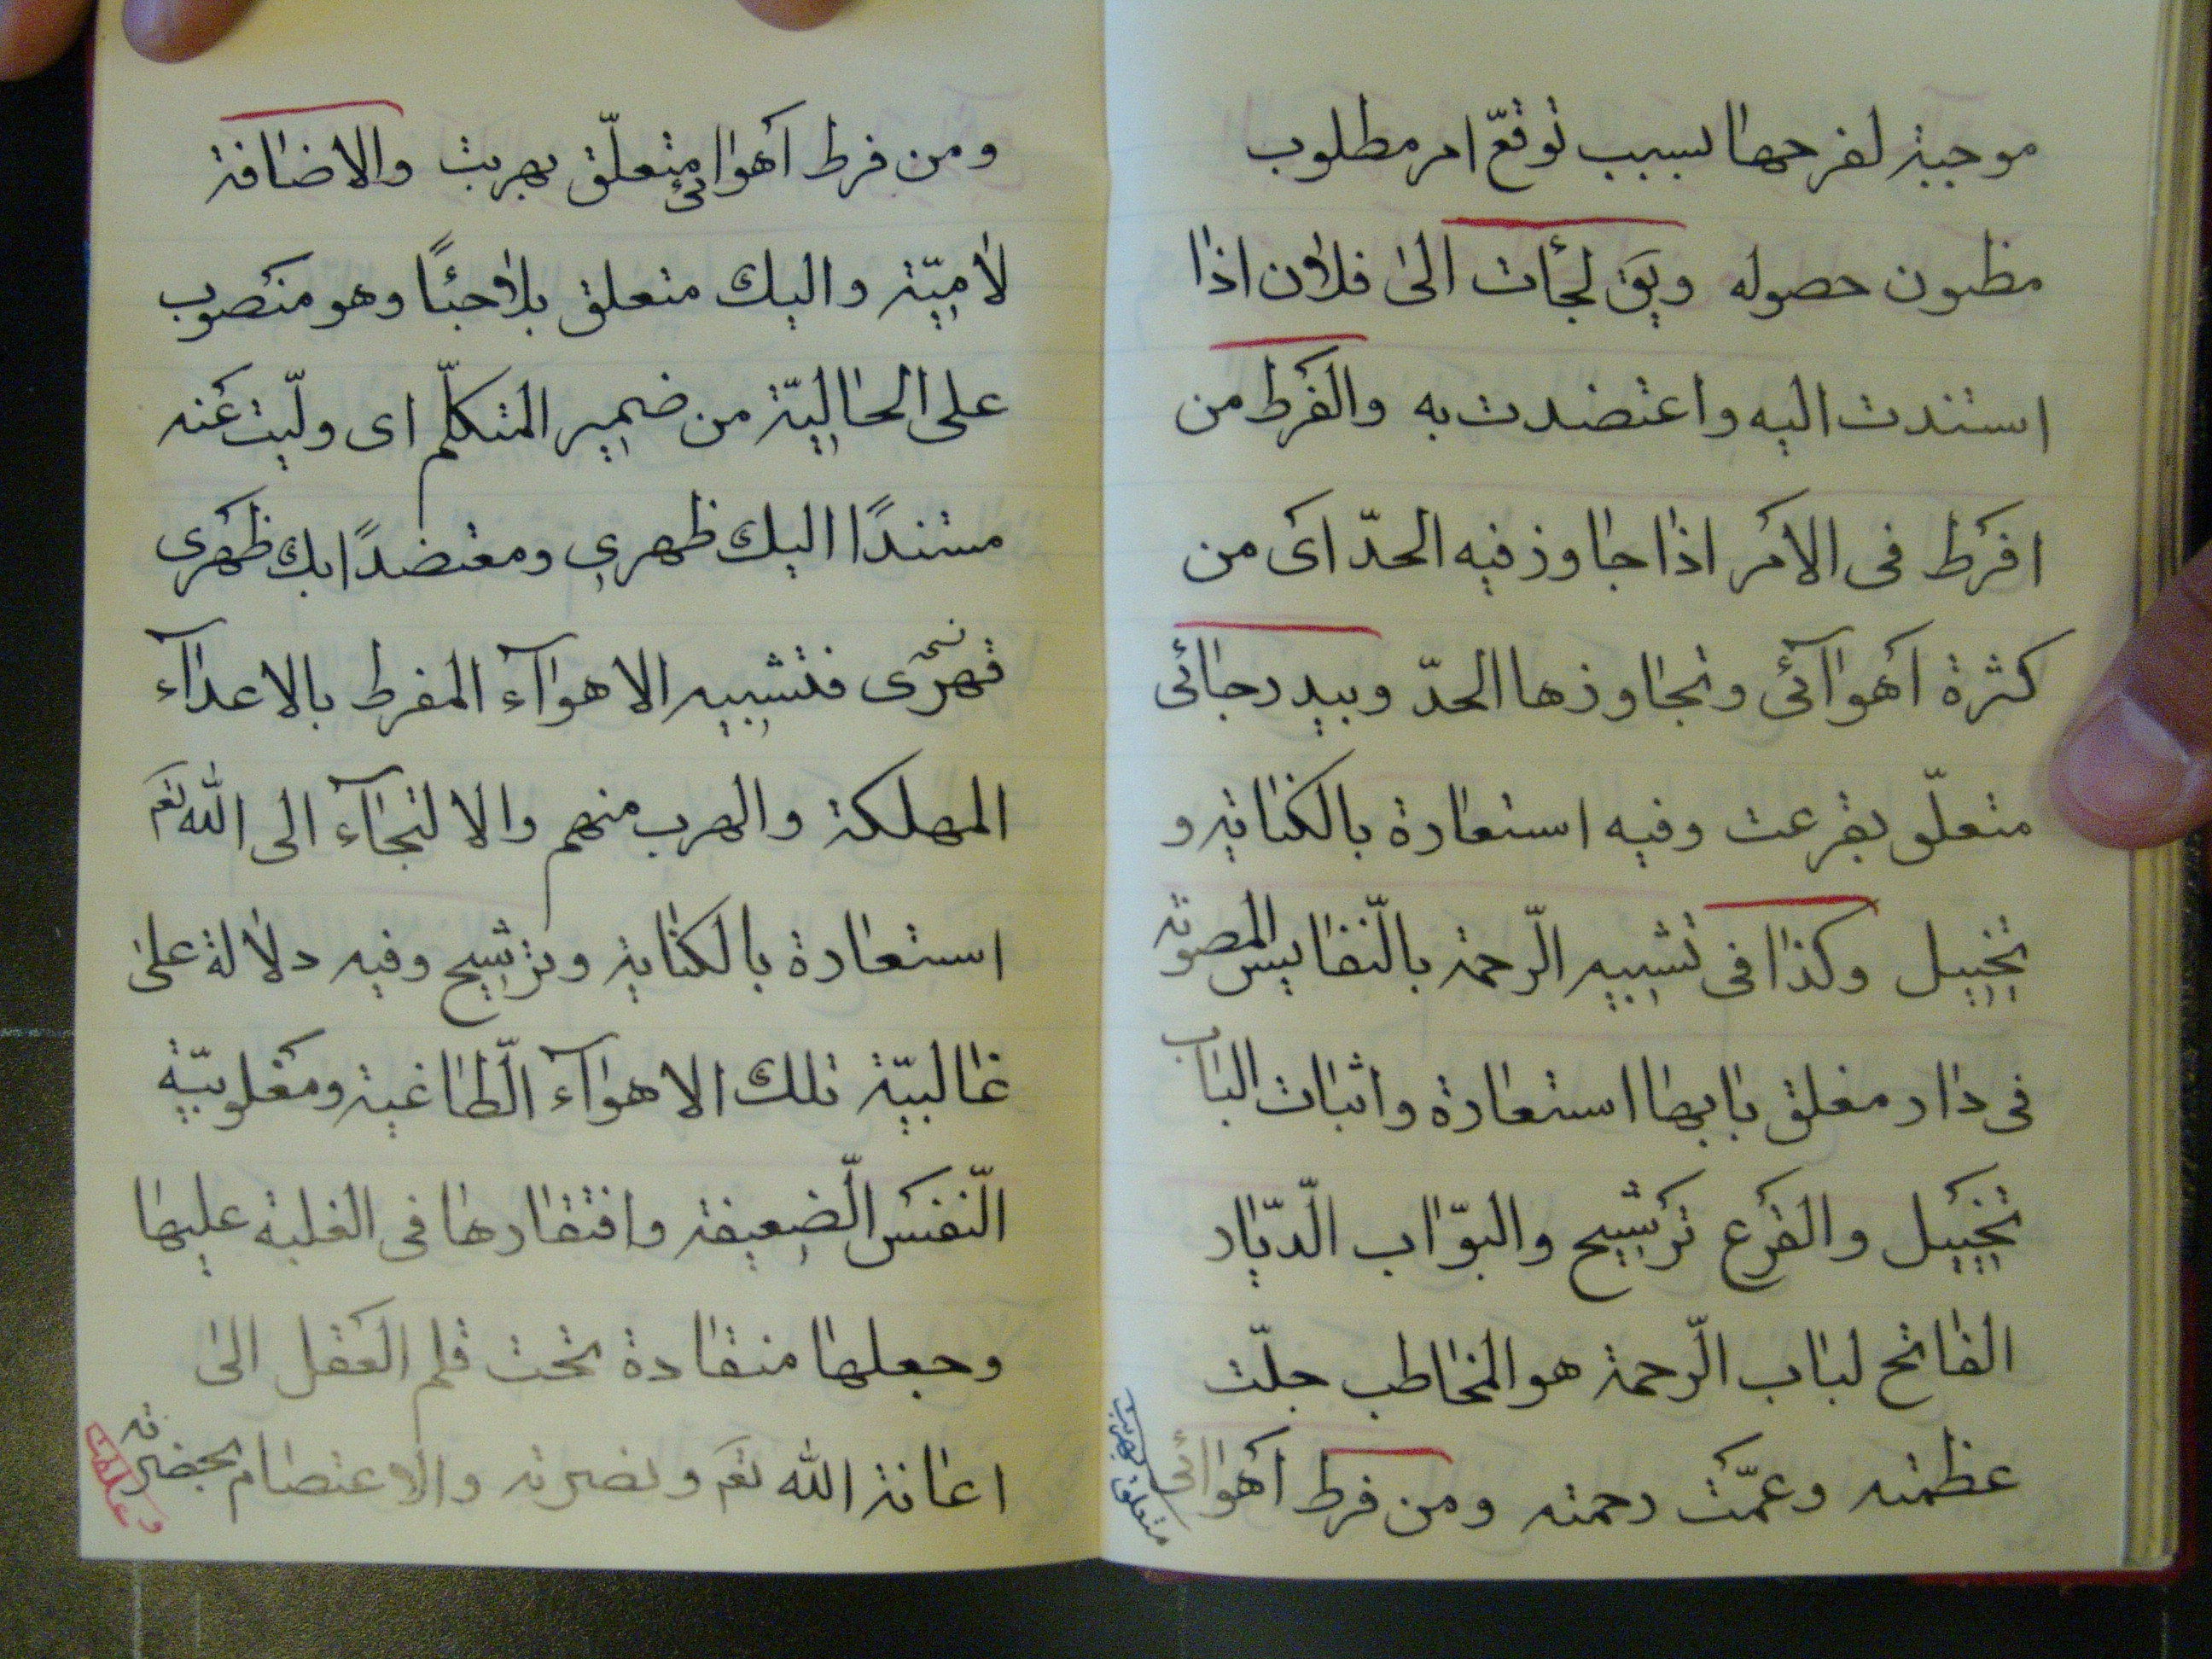 موجبة لفرحها بسبب توقّع امر مطلوب
مظنون حصوله ويقَ لجأت الى فلان اذا
استندت اليه واعتضدت به والفَرط من
افرَط فى الامَر اذا جاوز فيه الحدّ اىَ من
كثرة اَهوآئى وتجاوزها الحدّ وبيد رجائى
متعلّق بقرعت وفيه استعارة بالكناية و
تخييل وكذا فى تشبيه الرّحمة بالنّفايس المصونة
فى دار مغلق بابها استعارة واثبات الباب
تخيَيل والقرَع ترَشيح والبوّاب الدّيّار
الفاتح لباب الرّحمة هو المخاطب جلّت
عظمته وعمّت رحمته ومن فرط اَهوائى
متعلق بهربت
ومن فرط اَهوائى متعلّق بهربت والاضافة
لاميّة واليك متعلق بلاجئًا وهو منَصوب
على الحاليّة من ضمير المتكلّم اى ولّيت عَنه
مستندًا اليك ظهرى ومعتضدًا بك ظهَرى
فتشبيه الاهوآء المفرط بالاعدآء
المهلكة والهرب منهم والالتجآء الى الله تعَ
استعارة بالكناية وترشيح وفيه دلالة على
غالبيّة تلك الاهوآء الطّاغية ومغَلوبيّة
النّفسَ الضّعيفة وافتقارها فى الغلبة عليها
وجعلها منقادة تحت قلم العَقل الى
اعانة الله تعَ ونصرته والاعتصام بحضرته
وعظمت